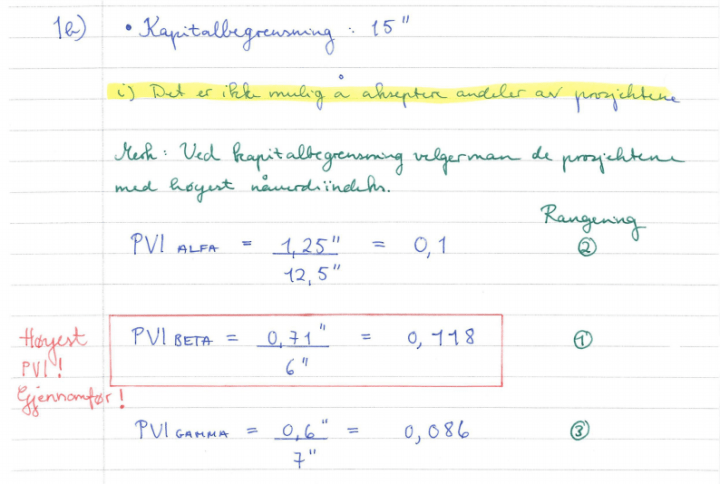 1b) • Kapitalbegrensning : 15"
i) Det er ikke mulig å akseptere andeler av prosjektene
Merk : Ved kapitalbegrensning velger man de prosjektene
med høyest nåverdiindeks.
Rangering
PVI ALFA = 1,25" / 12,5" = 0,1 ②
Høyest PVI! Gjennomfør!
PVI BETA = 0,71" / 6" = 0,118 ①
PVI GAMMA = 0,6" / 7" = 0,086 ③